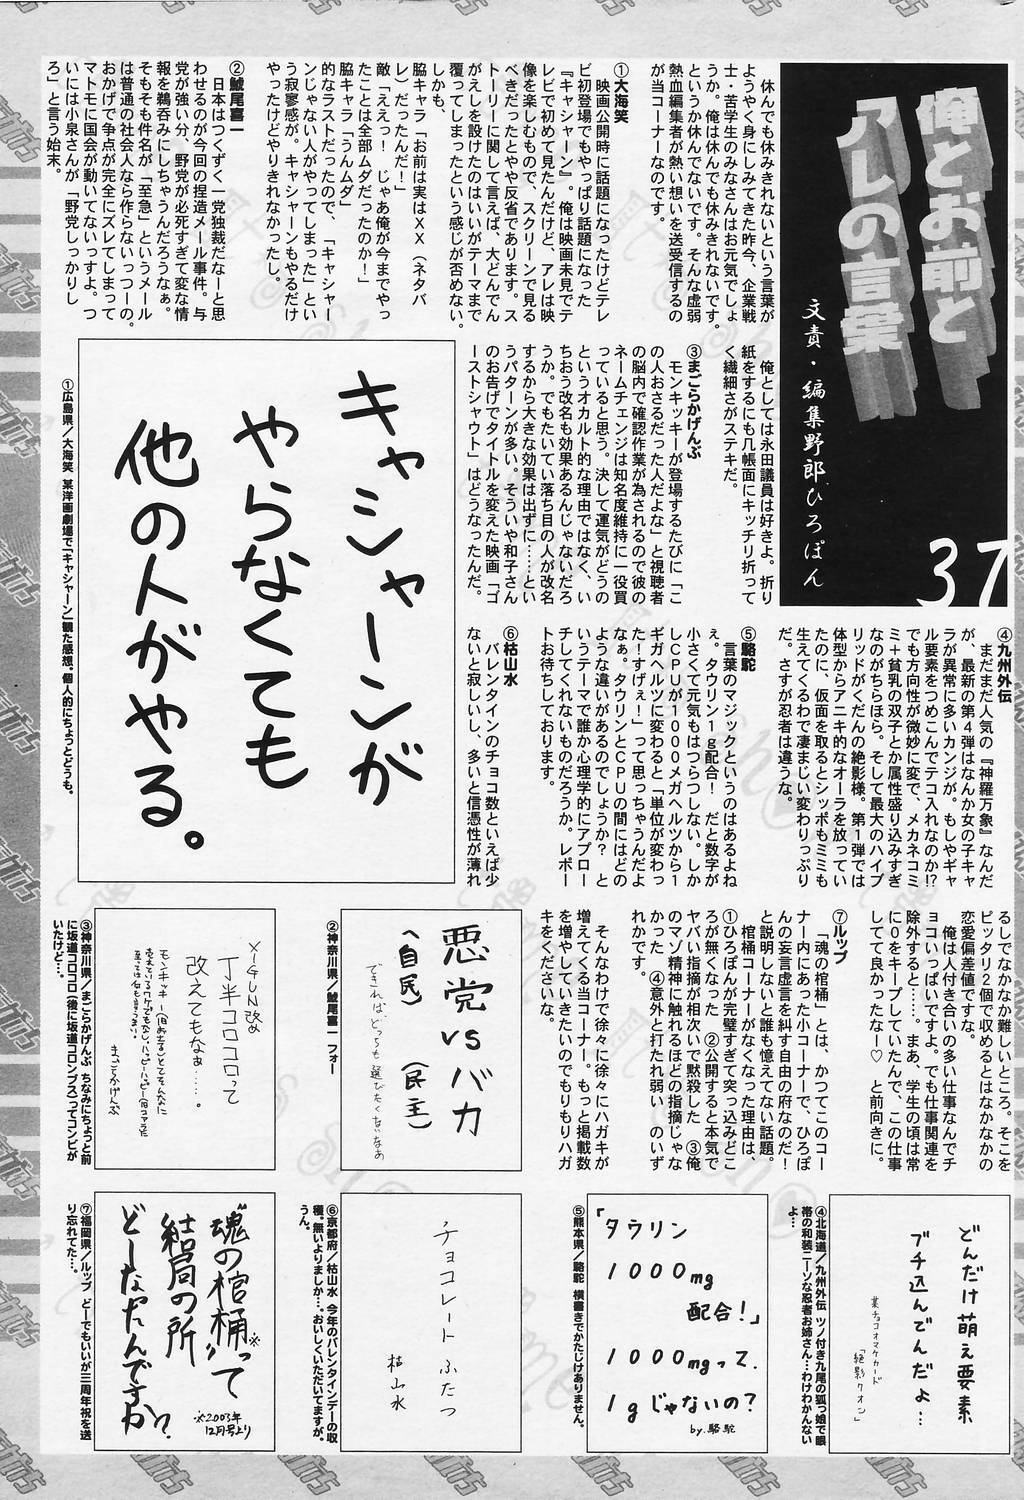 俺とお前と
アレの言葉
37
文責・編集野郎ひろぽん
休んでも休みきれないという言葉が
ようやく身にしみてきた昨今、企業戦
士・苦学生のみなさんはお元気でしょ
うか。俺は休んでも休みきれないです。
というか休んでないです。そんな虚弱
熱血編集者が熱い想いを送受信するの
が当コーナーなのです。
①大海笑
映画公開時に話題になったけどテレ
ビ初登場でもやっぱり話題になった
『キャシャーン』。俺は映画未見でテ
レビで初めて見たんだけど、アレは映
像を楽しむもので、スクリーンで見る
べきだったとやや反省であります。ス
トーリーに関して言えば、大どんでん
がえしを設けたのはいいがテーマまで
覆ってしまったという感じが否めない。
しかも、
脇キャラ「お前は実はXX(ネタバ
レ)だったんだ!」
敵「ええっ!　じゃあ俺が今までやっ
たことは全部ムダだったのか!」
脇キャラ「うんムダ」
的なラストだったので、「キャシャー
ンじゃない人がやってしまった」とい
う寂寥感が。キャシャーンもやるだけ
やったけどやりきれなかったし。
②鯱尾喜一
日本はつくづく一党独裁だなーと思
わせるのが今回の捏造メール事件。与
党が強い分、野党が必死すぎて変な情
報を鵜呑みにしちゃうんだろうなぁ。
そもそも件名が「至急」というメール
は普通の社会人なら作らないっつーの。
おかげで争点が完全にズレてしまって
マトモに国会が動いてないっすよ。つ
いには小泉さんが「野党しっかりし
ろ」と言う始末。
俺としては永田議員は好きよ。折り
紙をするにも几帳面にキッチリ折って
く繊細さがステキだ。
③まごらかげんぶ
モンキッキーが登場するたびに「こ
の人おさるだった人だよな」と視聴者
の脳内で確認作業が為されるので彼の
ネームチェンジは知名度維持に一役買
っていると思う。決して運気がどうの
というオカルト的な理由ではなく、い
ちおう改名も効果あるんじゃないだろ
うか。でもたいてい落ち目の人が改名
するから大きな効果は出ずに……とい
うパターンが多い。そういや和子さん
のお告げでタイトルを変えた映画「ゴ
ーストシャウト」はどうなったんだ。
キャシャーンが
やらなくても
他の人がやる。
①広島県／大海笑　某洋画劇場で「キャシャーン」観た感想。個人的にちょっとどうも。
④九州外伝
まだまだ人気の『神羅万象』なんだ
が、最新の第4弾はなんか女の子キャ
ラが異常に多いカンジが。もしやギャ
ル要素をつめこんでテコ入れなのか!?
でも方向性が微妙に変で、メカネコミ
ミ+貧乳の双子とか属性盛り込みすぎ
なのがちらほら。そして最大のハイブ
リッドがくだんの絶影様。第1弾では
体型からアニキ的なオーラを放ってい
たのに、仮面を取るとシッポもミミも
生えてくるわで凄まじい変わりっぷり
だ。さすが忍者は違うな。
⑤駱駝
言葉のマジックというのはあるよね
ぇ。タウリン1g配合!　だと数字が
小さくて元気もはつらつしない。しか
しCPUが1000メガヘルツから1
ギガヘルツに変わると「単位が変わっ
た!すげぇ!」って思っちゃうんだよ
なぁ。タウリンとCPUの間にはどの
ような違いがあるのでしょうか?　と
いうテーマで誰か心理学的にアプロー
チしてくれないものだろうか。レポー
トお待ちしております。
⑥枯山水
バレンタインのチョコ数といえば少
ないと寂しいし、多いと信憑性が薄れ
るしでなかなか難しいところ。そこを
ピッタリ2個で収めるとはなかなかの
恋愛偏差値ですな。
俺は人付き合いの多い仕事なんでチ
ョコいっぱいですよ。でも仕事関連を
除外すると……。まあ、学生の頃は常
に0をキープしていたんで、この仕事
してて良かったなー♡　と前向きに。
⑦ルップ
「魂の棺桶」とは、かつてこのコー
ナー内にあった小コーナーで、ひろぽ
んの妄言虚言を糾す自由の府なのだ!
と説明しないと誰も憶えてない話題。
棺桶コーナーがなくなった理由は、
①ひろぽんが完璧すぎて突っ込みどこ
ろが無くなった　②公開すると本気で
ヤバい指摘が相次いで黙殺した　③俺
のマゾ精神に触れるほどの指摘じゃな
かった　④意外と打たれ弱い　のいず
れかです。
そんなわけで徐々に徐々にハガキが
増えてくる当コーナー。もっと掲載数
を増やしていきたいのでもりもりハガ
キをくださいな。
悪党vsバカ
(自民)
(民主)
できれば、どっちも選びたくないなあ
②神奈川県／鯱尾喜一　フォー
メーGUN改め
丁半コロコロって
改えてもなぁ……。
まごらかげんぶ
③神奈川県／まごらかげんぶ　ちなみにちょっと前
に坂道コロコロ(後に坂道コロンブス)ってコンビが
いたけど…。
どんだけ萌え要素
ブチ込んでんだよ…
某チョコオマケカード
「絶影クオン」
④北海道／九州外伝　ツノ付き九尾の狐っ娘で眼
帯の和装ニーソな忍者お姉さん…わけわかんない
よ…
「タウリン
1000mg
配合!」
1000mgって、
1gじゃないの?
by.駱駝
⑤熊本県／駱駝　横書きでかたじけありません。
チョコレートふたつ
枯山水
⑥京都府／枯山水　今年のバレンタインデーの収
穫。無いよりましか…。おいしくいただいてますが。
うん。
“魂の棺桶”※って
結局の所
どーなったんですか?
※2003年
12月号より
⑦福岡県／ルップ　どーでもいいが三周年祝を送
り忘れてた…。